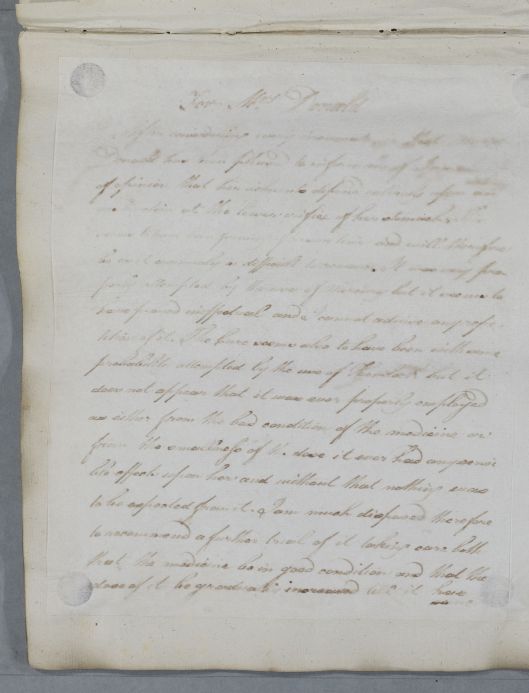 For Mrs Donald
After considering every
Donald has been pleased to inform me of I am
of opinion that her ails depend upon an
at the lower orifice of her stomach.
and will therefore
difficult to remove. It was very pro
perly attempted by the use of Mercury but it seems to
have proved ineffectual and I cannot advise any repe
tition of it. The cure seems also to have been with some
probability attempted by the use of Hemlock but it
does not appear that it was ever properly employed
as either from the bad condition of the medicine or
from the smallness of the dose it ever had any sensi
ble effects upon her and without that nothing was
to be expected from it. I am much disposed therefore
to recommend a further trial of it taking care both
that the medicine be in good condition and that the
dose of it be gradually increased till it have
some